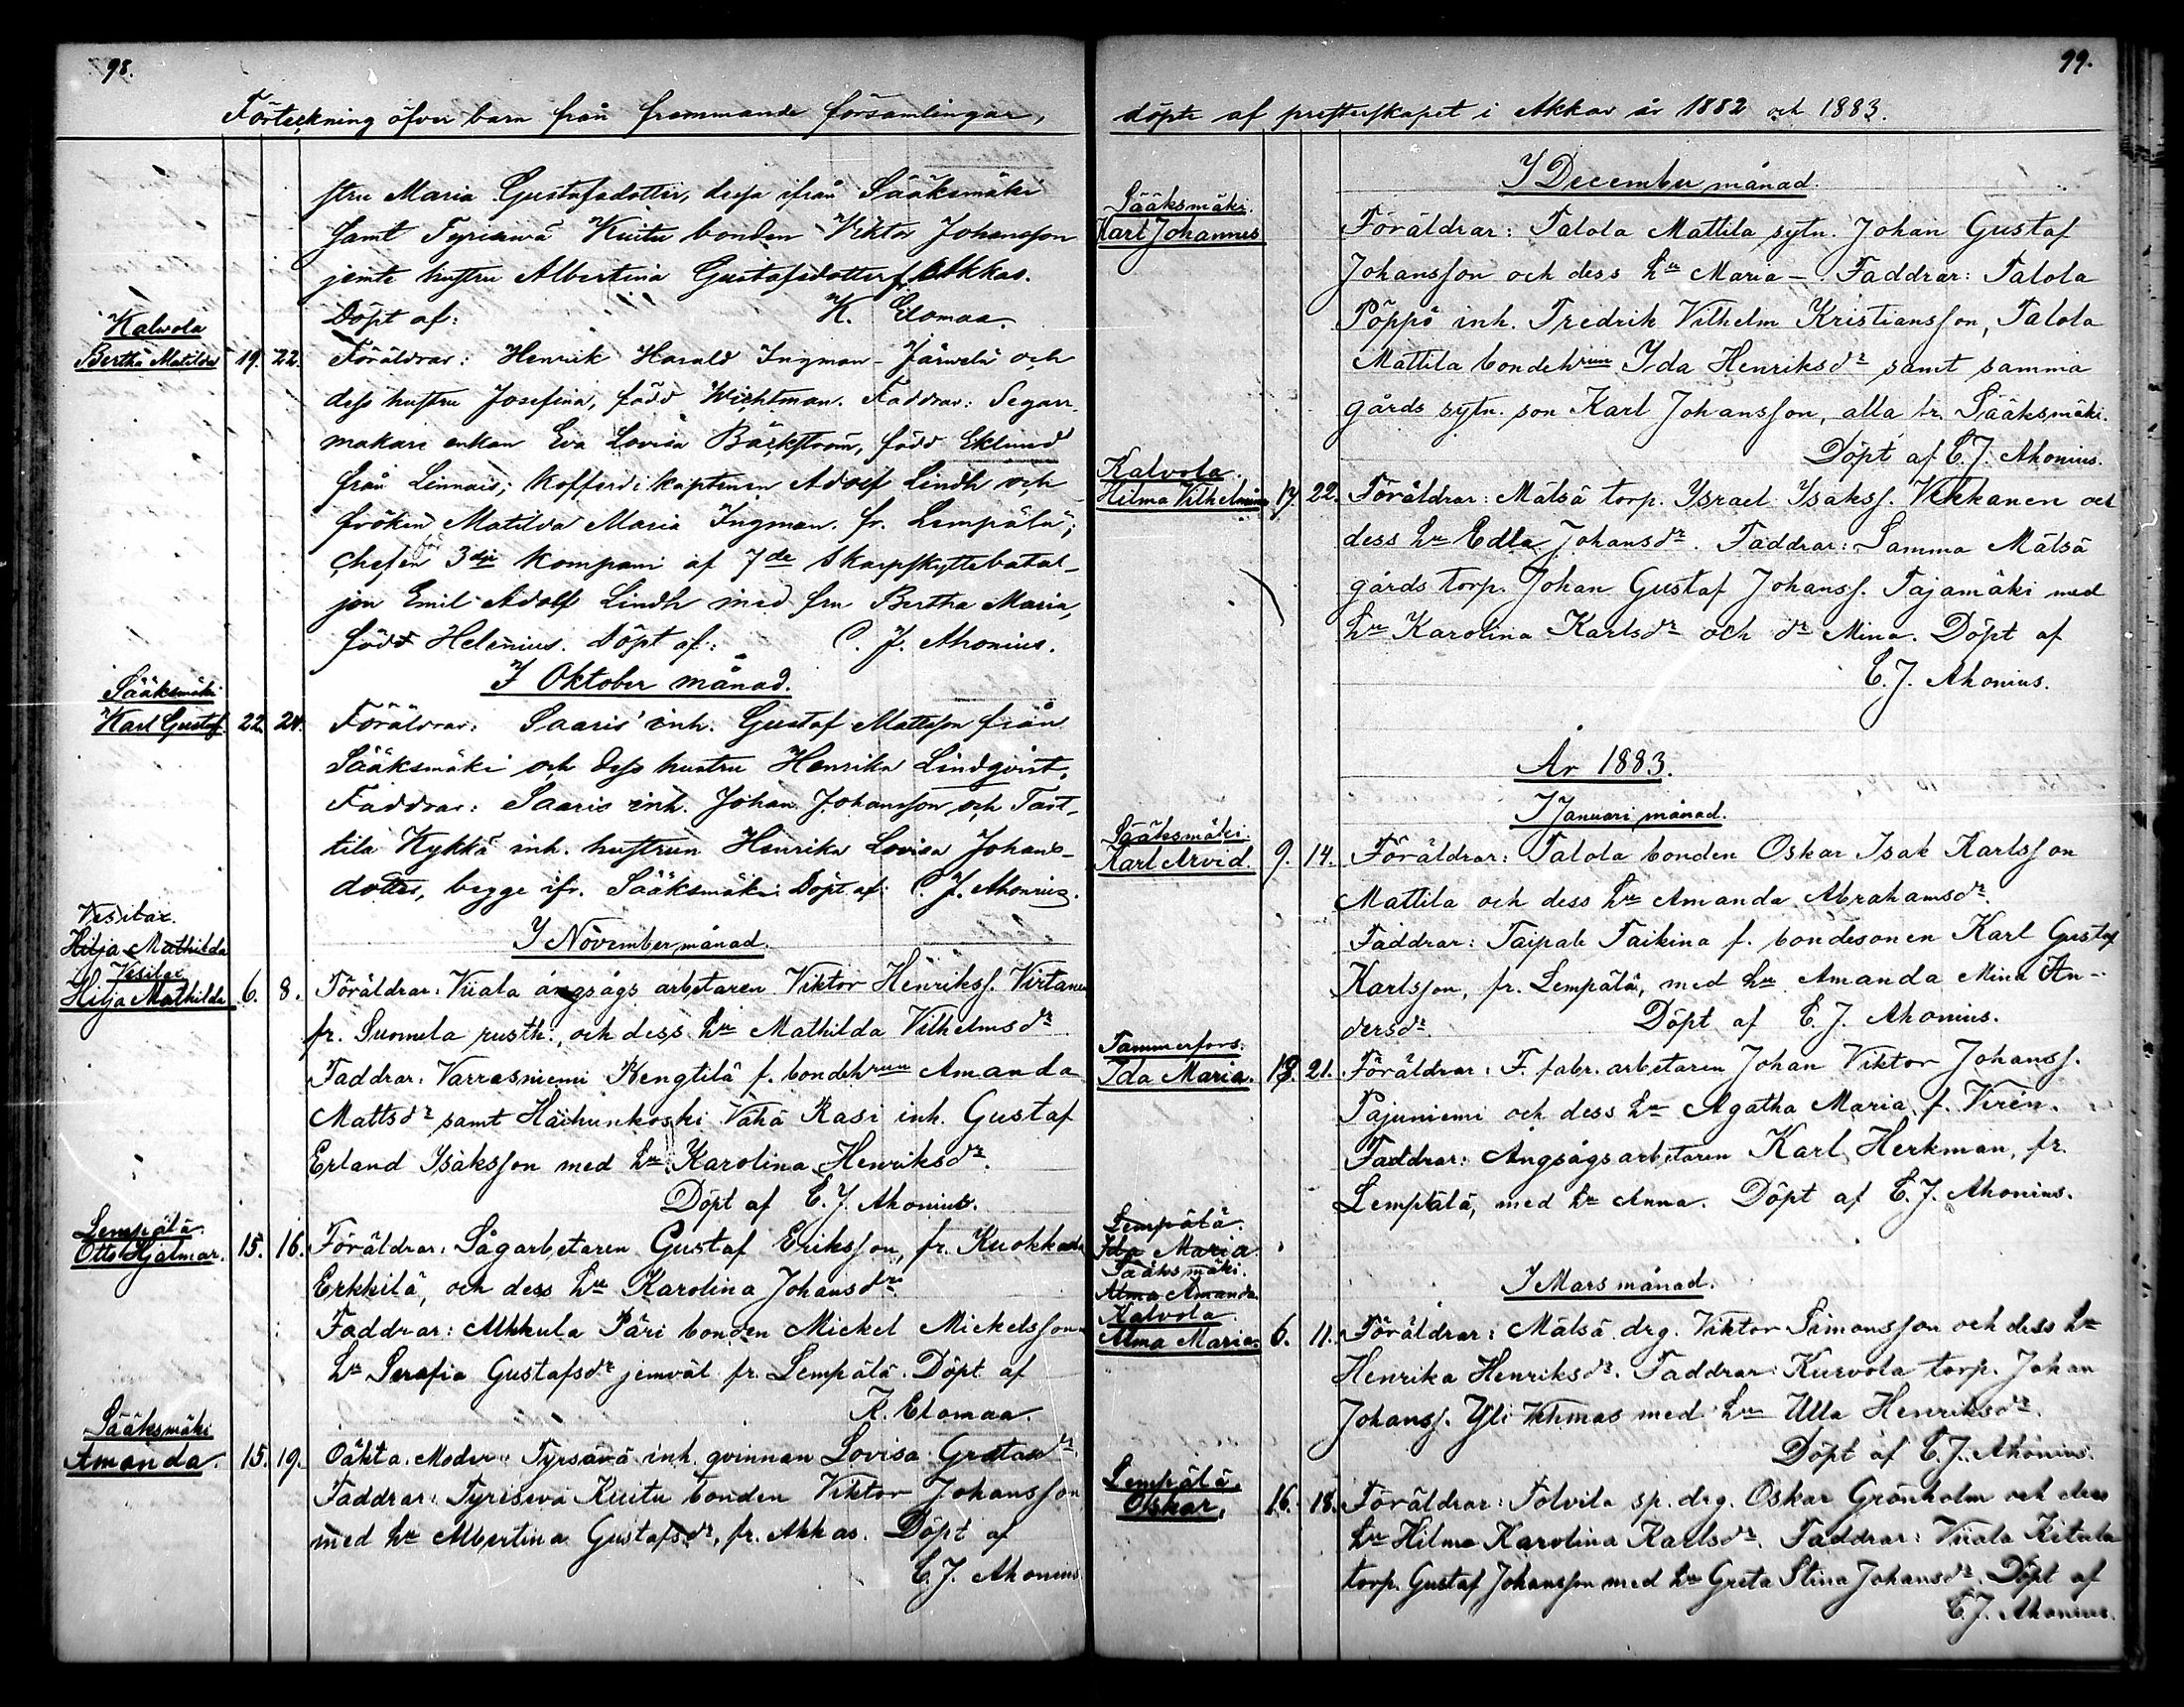 98.
Förteckning öfver barn från frammande församlingar,
stru Maria Gustafsdotter, dessa ifrån Sääksmäki
samt Tyrisevä Kuitu bonden Viktor Johansson
jemte hustru Albertina Gustafsdotter fr. Akkas.
Döpt af: K. Elomaa.
Kalvola
Bertha Matilda 19. 22. Föräldrar: Henrik Harald Ingman - Järvelä och
dess hustru Josefina, född Wichtman. Faddrar: Segarr
makari enkan Eva Lovisa Bäckström, född Eklund
från Linnais; Kofferdi kaptenen Adolf Lindh och
fröken Matilda Maria Ingman. fr. Lempälä;
chefen för 3dje kompani af 7de Skarpskyttebatal-
jon Emil Adolf Lindh med fru Bertha Maria,
född Helenius. Döpt af: C. J. Ahonius.
I Oktober månad.
Sääksmäki
Karl Gustaf. 22. 24. Föräldrar: Saaris inh. Gustaf Mattsson från
Sääksmäki och dess hustru Henrika Lindqvist.
Faddrar: Saaris inh. Johan Johansson och Tart-
tila Kykkä inh. hustrun Henrika Lovisa Johans-
dotter, begge ifr. Sääksmäki. Döpt af: C. J. Ahonius.
I November månad.
Vesilax.
Hilja Mathilda
Vesilax
Hilja Mathilda 6. 8. Föräldrar: Viiala ångsågs arbetaren Viktor Henrikss. Virtanen
fr. Suomela rusth., och dess hu Mathilda Vilhelmsdr
Faddrar: Varrasniemi Kengtilä f. bondehrun Amanda
Mattsdr samt Haihunkoski Vähä Rasi inh. Gustaf
Erland Isaksson med hu Karolina Henriksdr.
Döpt af C. J. Ahonius.
Lempälä.
Otto Hjalmar. 15. 16. Föräldrar: Sågarbetaren Gustaf Eriksson, fr. Kuokkala
Erkkilä, och dess hu Karolina Johansdr.
Faddrar: Alkkula Päri bonden Mickel Mickelsson
hu Serafia Gustafsdr jemväl fr. Lempälä. Döpt af
K. Elomaa.
Sääksmäki
Amanda. 15. 19. Oäkta. Moder: Tyrsävä inh. qvinnan Lovisa
Faddrar: Tyrisevä Kuitu bonden Viktor Johansson
med hu Albertina Gustafsdr, fr. Akkas. Döpt af
C. J. Ahonius
99.
döpte af presterskapet i Akkas år 1882 och 1883.
I December månad.
Sääksmäki.
Karl Johannes Föräldrar: Talola Mattila sytn. Johan Gustaf
Johansson och dess hu Maria - Faddrar: Talola
Pöppö inh. Fredrik Vilhelm Kristiansson, Talola
Mattila bondehrun Ida Henriksdr samt samma
gårds sytn. son Karl Johansson, alla fr. Sääksmäki.
Döpt af C. J. Ahonius.
Kalvola.
Hilma Vilhelmina 17. 22. Föräldrar: Mälsä torp. Israel Isakss. Vekkanen och
dess hu Edla Johansdr. Faddrar: Samma Mälsä
gårds torp. Johan Gustaf Johanss. Tajamäki med
hu Karolina Karlsdr och dr Mina. Döpt af
C. J. Ahonius.
År 1883.
I Januari månad.
Sääksmäki.
Karl Arvid. 9. 14. Föräldrar: Talola bonden Oskar Isak Karlsson
Mattila och dess hu Amanda Abrahamsdr.
Faddrar: Taipale Taikina f. bondesonen Karl Gustaf
Karlsson, fr. Lempälä, med hu Amanda Mina An-
dersdr. Döpt af C. J. Ahonius.
Tammerfors.
Ida Maria. 18. 21. Föräldrar: F. fabr. arbetaren Johan Viktor Johanss.
Pajuniemi och dess hu Agatha Maria f. Virén.
Faddrar: Ångsågsarbetaren Karl Herkman, fr.
Lempälä, med hu Anna. Döpt af C. J. Ahonius.
Lempälä.
Ida Maria
Sääksmäki.
Alma Amanda.
I Mars månad.
Kalvola.
Alma Maria. 6. 11. Föräldrar: Mälsä drg. Viktor Simonsson och dess hu
Henrika Henriksdr. Faddrar: Kurvola torp. Johan
Johanss. Yli Vehmas med hu Ulla Henriksdr.
Döpt af C. J. Ahonius.
Lempälä.
Oskar, 16. 18. Föräldrar: Tolvila sp. drg. Oskar Grönholm och dess
hu Hilma Karolina Karlsdr. Faddrar: Viiala Kitula
torp. Gustaf Johansson med hu Greta Stina Johansdr. Döpt af
C. J. Ahonius.